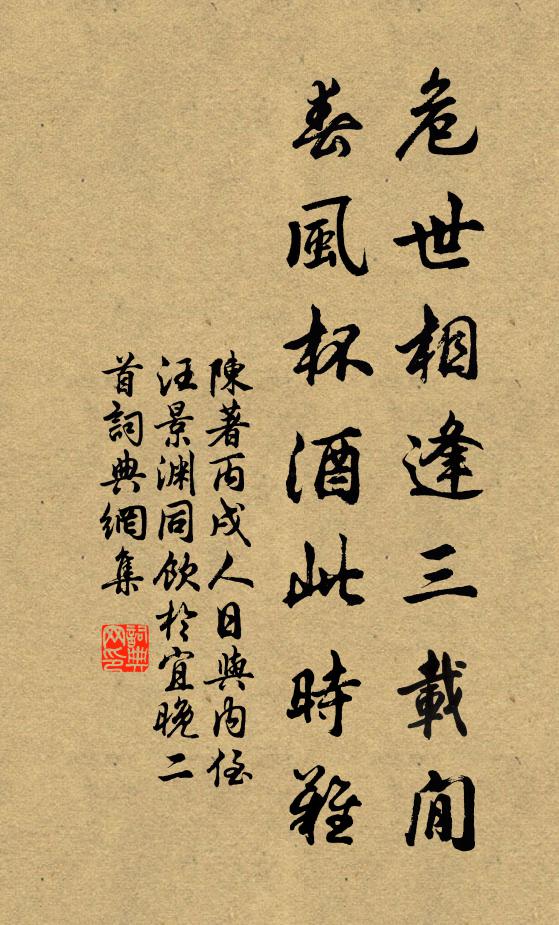 危世相逢三載間
春風杯酒此時難
陳著丙戌人日與內侄
汪景渊同飲於宜晚二
首詞典網集
詞典
网印